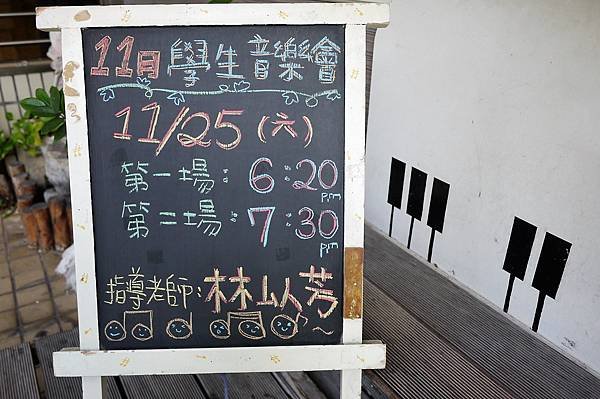 11月 學生音樂會
11/25(六)
第一場:6:20pm
第二場:7:30pm
指導老師:林以芳